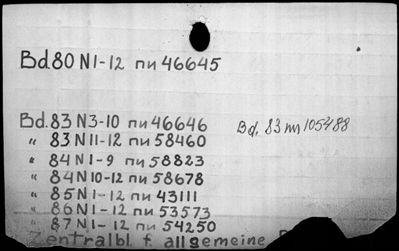 Bd. 80 N 1-12 пи 46645
Bd. 83 N 3-10 пи 46646
Bd. 83 пи 105488
" 83 N 11-12 пи 58460
" 84 N 1-9 пи 58823
" 84 N 10-12 пи 58678
" 85 N 1-12 пи 43111
" 86 N 1-12 пи 53573
" 87 N 1-12 пи 54250
Zentralbl. f. allgemeine